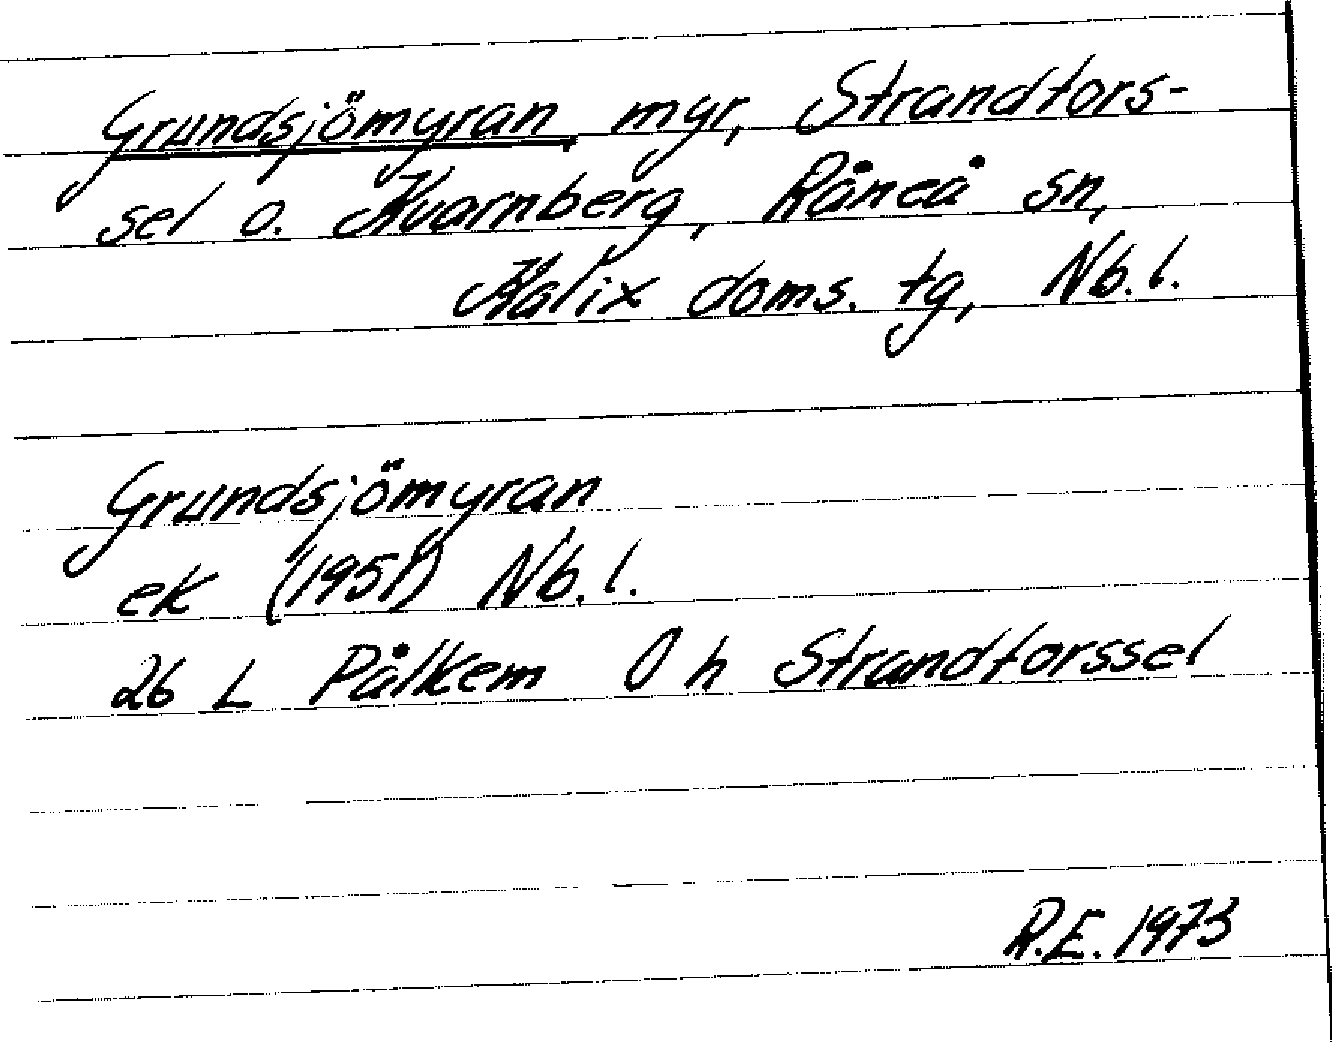 Grundsjömyran myr, Strandfors-
sel o. Kvarnberg, Råneå sn,
Kalix doms. tg, Nb.l.
Grundsjömyran
ek (1951) Nb.l.
26 L Pålkem O h Strandforssel
R.E. 1973